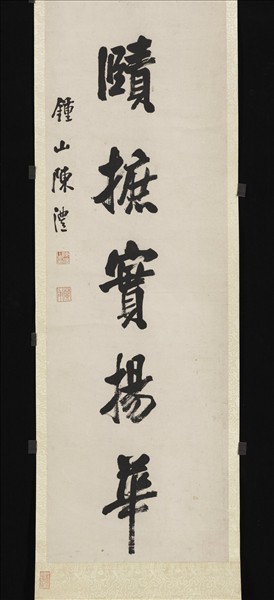 賾摭實揚華
鍾山陳澧